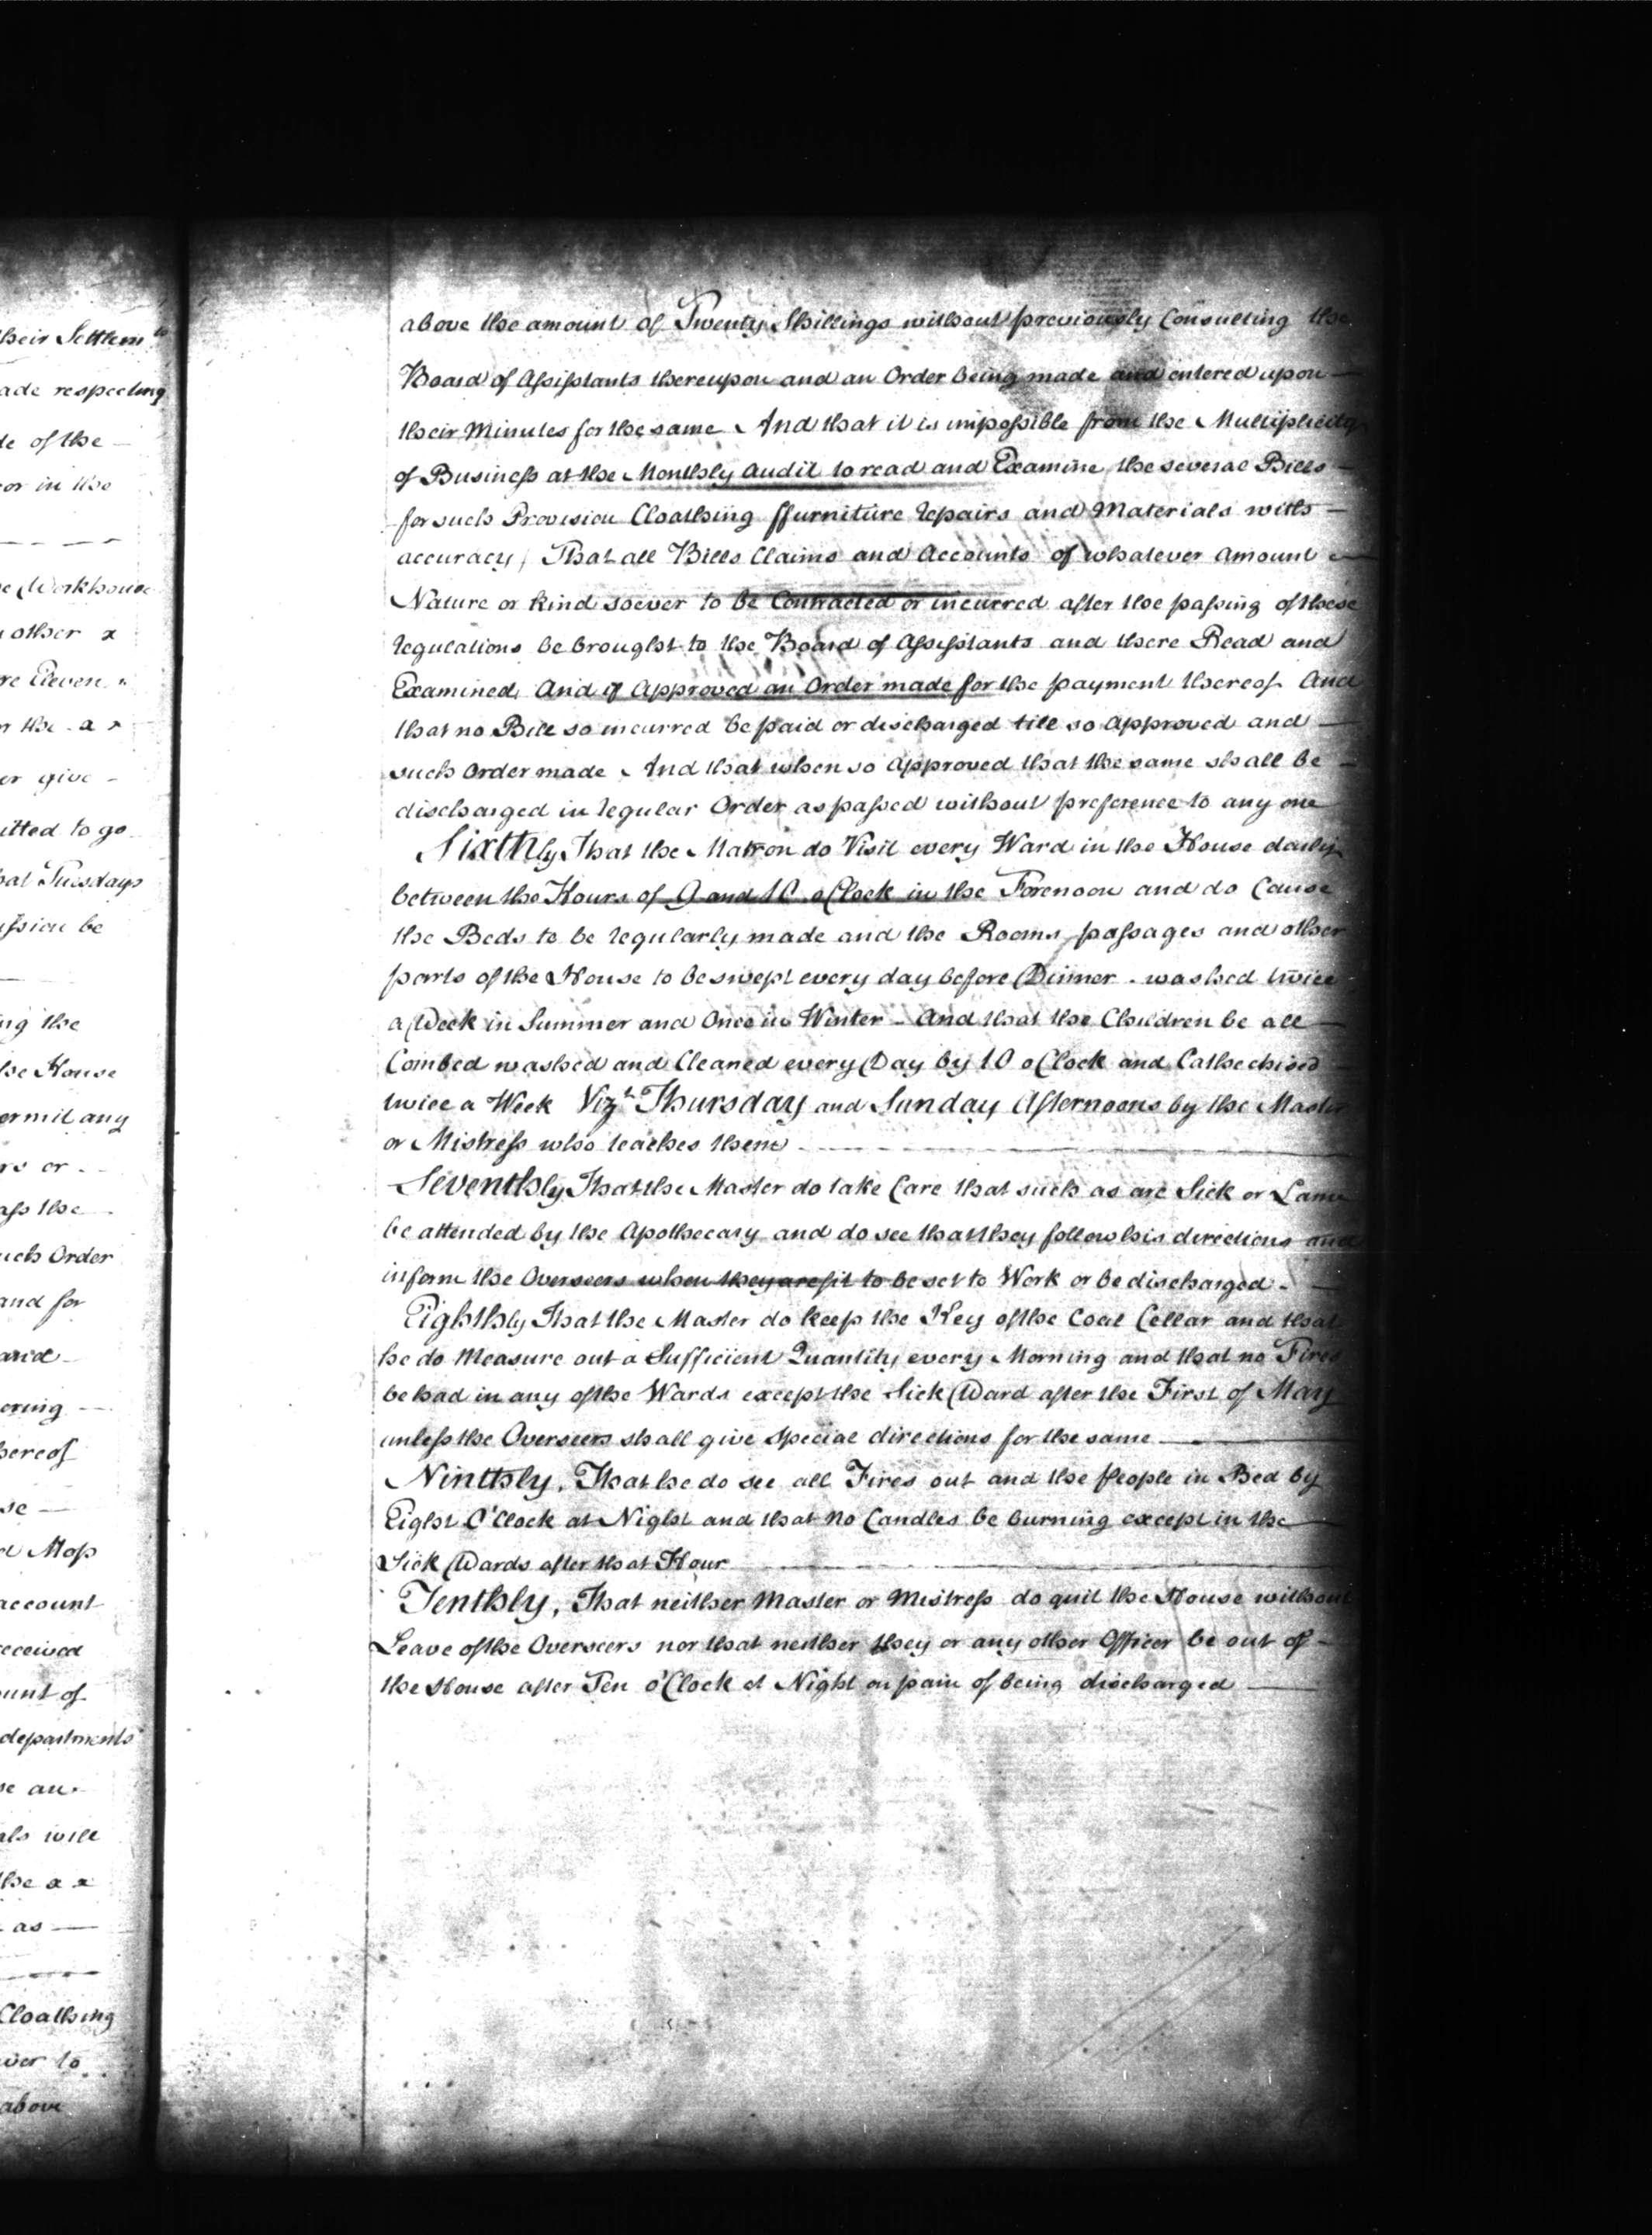 their Settlem.ts
ade respecting
le of the
or in the
e Workhouse
other x
re Eleven
r the a x
er give
itted to go
hat Tuesdays
ission be
ng the
he House
ermit any
rs or
ass the
uch Order
and for
and
ering
hereof
se
d Mop
account
eceived
ount of
departments
se an
als will
the a x
as
Cloathing
ver to
above
above the amount of Twenty Shillings without previously Consulting the
Board of Assistants thereupon and an Order being made and entered upon
their Minutes for the same And that it is impossible from the Multiplicity
of Business at the Monthly Audit to read and Examine the several Bills
for such Provision Cloathing ffurniture repairs and Materials with
accuracy, That all Bills Claims and Accounts of whatever Amount
Nature or kind soever to be Contracted or incurred after the passing of these
regulations be brought to the Board of Assistants and there Read and
Examined And if Approved an Order made for the payment thereof And
that no Bill so incurred be paid or discharged till so Approved and
such Order made And that when so Approved that the same shall be
discharged in regular Order as passed without preference to any one
Sixthly That the Matron do Visit every Ward in the House daily
between the Hours of 9 and 10 oClock in the Forenoon and do Cause
the Beds to be regularly made and the Rooms passages and other
parts of the House to be swept every day before Dinner washed twice
a Week in Summer and Once in Winter And that the Children be all
Combed washed and Cleaned every Day by 10 oClock and Cathechised
twice a Week Vizt. Thursday and Sunday Afternoons by the Master
or Mistress who teaches them
Seventhly That the Master do take Care that such as are Sick or Lame
be attended by the Apothecary and do see that they follow his directions and
inform the Overseers when they are fit to be set to Work or be discharged
Eighthly That the Master do keep the Key of the Coal Cellar and that
he do Measure out a Sufficient Quantity every Morning and that no Fires
be had in any of the Wards except the Sick Ward after the First of May
unless the Overseers shall give special directions for the same
Ninthly, That he do see all Fires out and the people in Bed by
Eight O'Clock at Night and that no Candles be burning except in the
Sick Wards after that Hour
Tenthly, That neither Master or Mistress do quit the House without
Leave of the Overseers nor that neither they or any other Officer be out of
the House after Ten o'Clock at Night on pain of being discharged